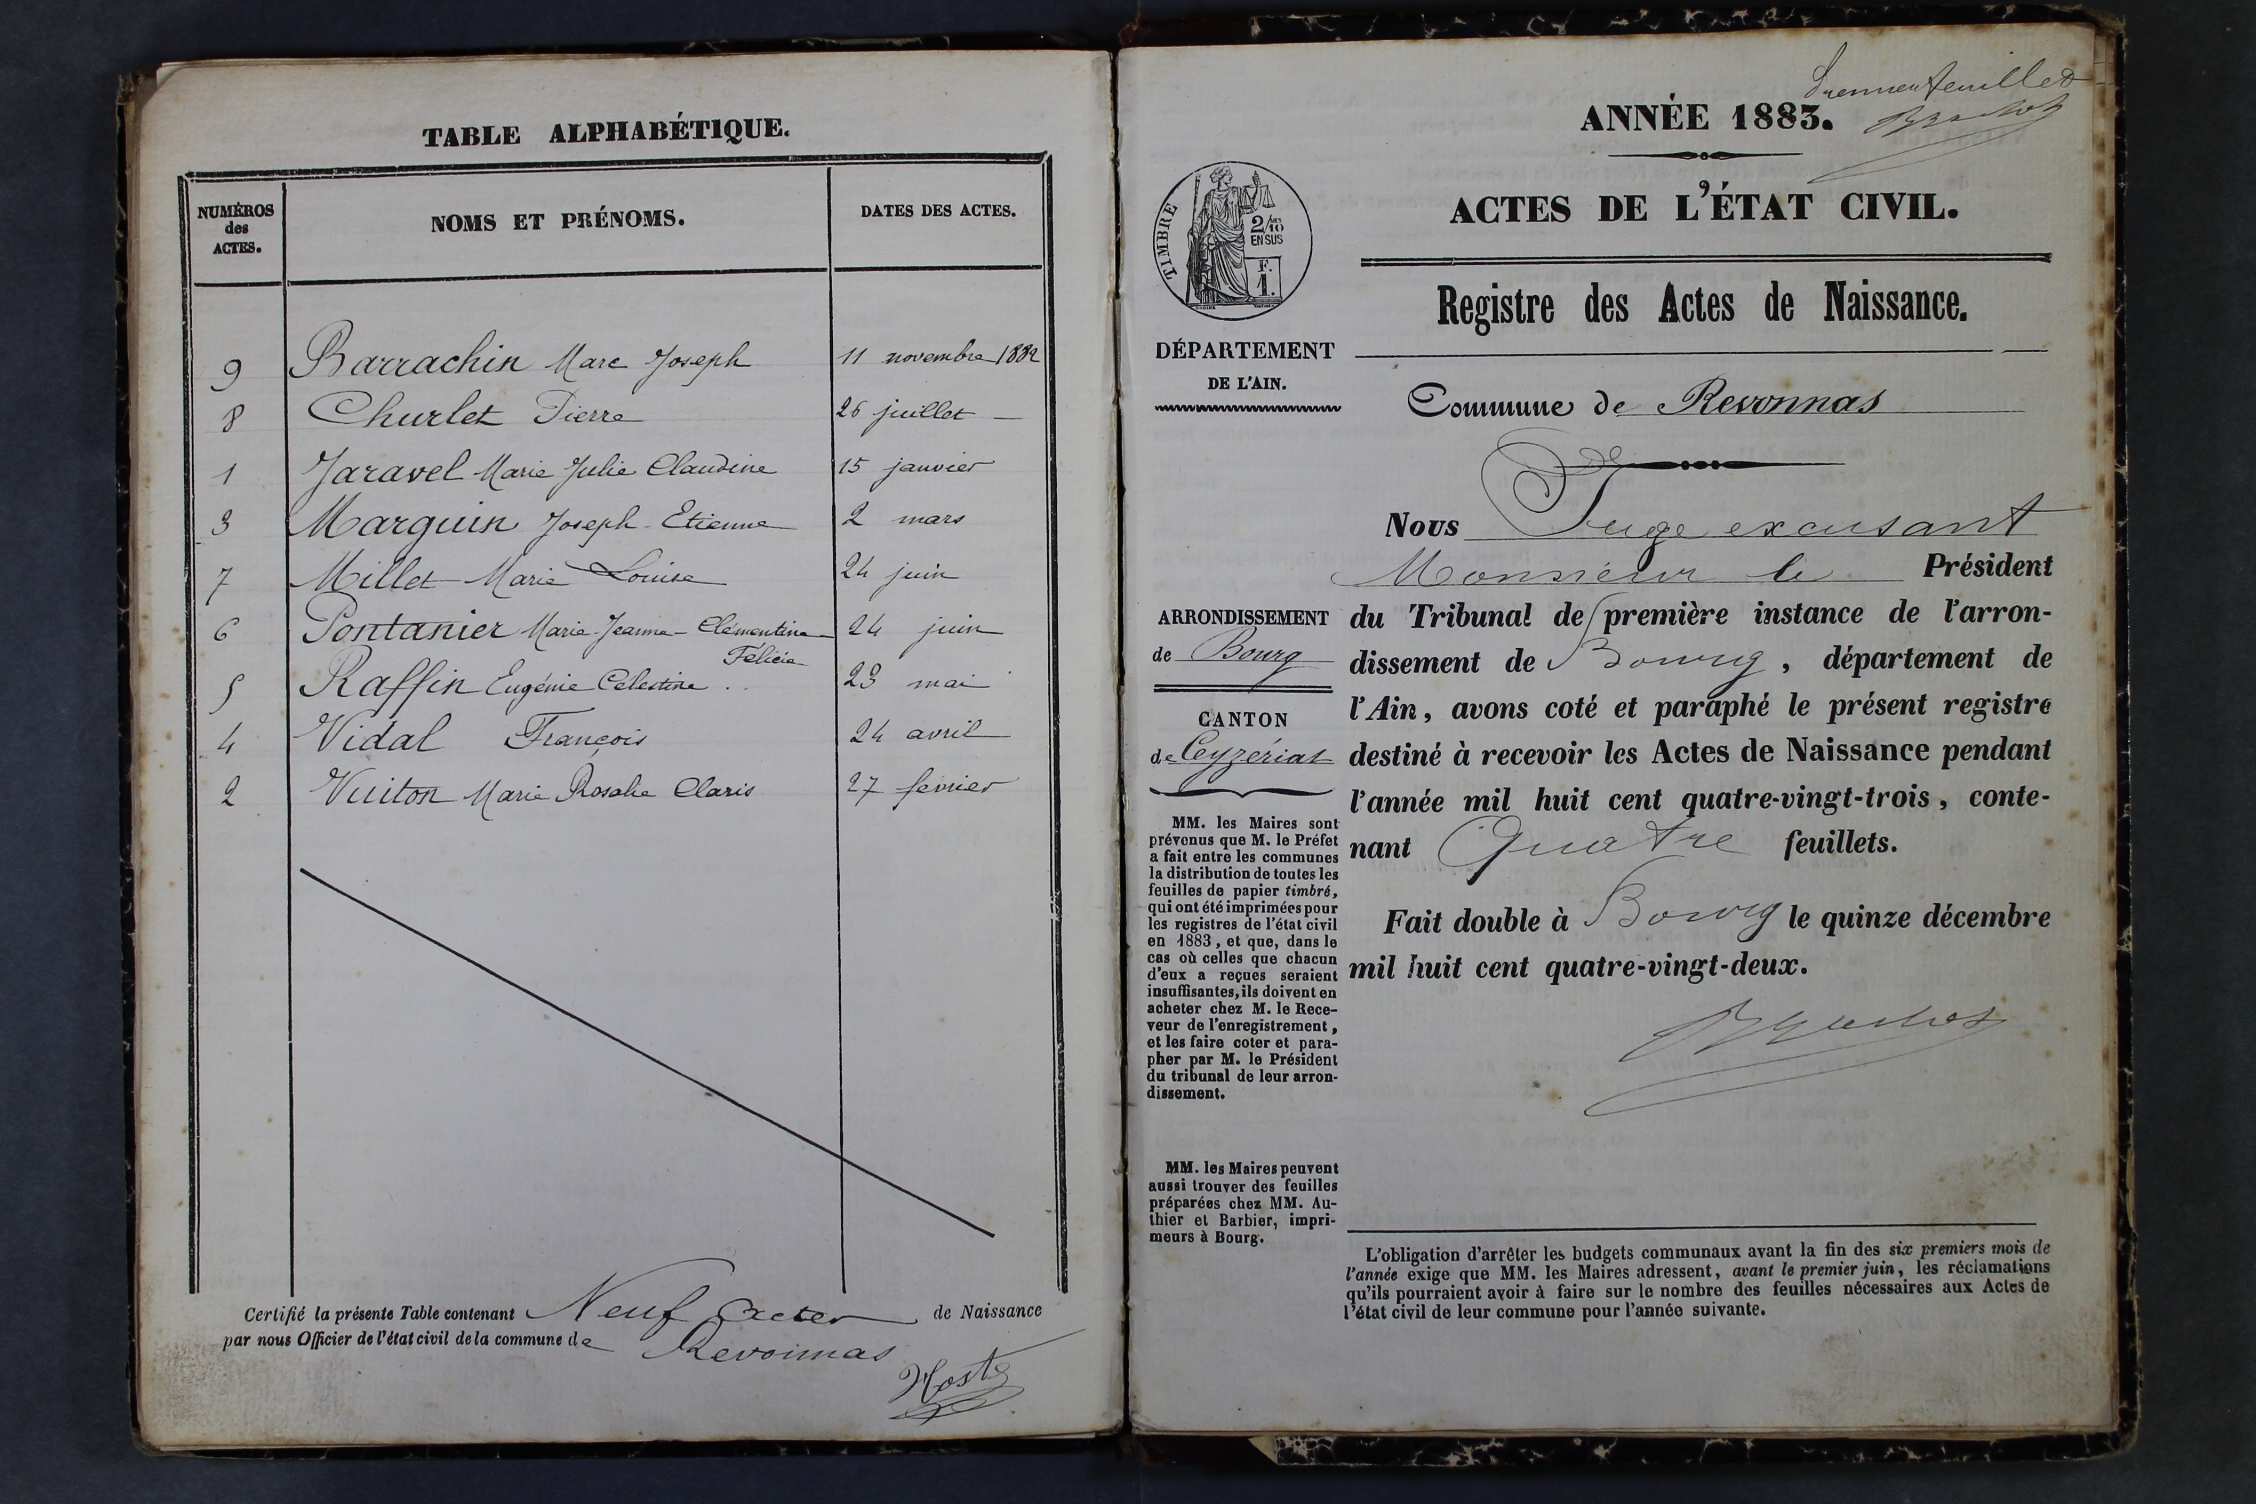 TABLE ALPHABÉTIQUE.
NUMÉROS des ACTES.
NOMS ET PRÉNOMS.
DATES DES ACTES.
9 Barrachin Marc Joseph 11 novembre 1882
8 Churlet Pierre 26 juillet —
1 Jaravel Marie Julie Claudine 15 janvier
3 Marguin Joseph Etienne 2 mars
7 Millet Marie Louise 24 juin
6 Pontanier Marie-Jeanne-Clémentine 24 juin
Félicie
5 Raffin Eugénie Célestine 23 mai
4 Vidal François 24 avril
2 Vuiton Marie Rosalie Claris 27 février
Certifié la présente Table contenant Neuf Actes de Naissance
par nous Officier de l'état civil de la commune de Revonnas
premier feuillet
ANNÉE 1883.
ACTES DE L'ÉTAT CIVIL.
TIMBRE
2/10
EN SUS
F.
1.
Registre des Actes de Naissance.
DÉPARTEMENT
DE L'AIN.
Commune de Revonnas
Nous Juge excusant
Monsieur le Président
du Tribunal de première instance de l'arron-
dissement de Bourg, département de
l'Ain, avons coté et paraphé le présent registre
destiné à recevoir les Actes de Naissance pendant
l'année mil huit cent quatre-vingt-trois, conte-
nant Quatre feuillets.
Fait double à Bourg le quinze décembre
mil huit cent quatre-vingt-deux.
ARRONDISSEMENT
de Bourg
CANTON
de Ceyzériat
MM. les Maires sont
prévenus que M. le Préfet
a fait entre les communes
la distribution de toutes les
feuilles de papier timbré,
qui ont été imprimées pour
les registres de l'état civil
en 1883, et que, dans le
cas où celles que chacun
d'eux a reçues seraient
insuffisantes, ils doivent en
acheter chez M. le Rece-
veur de l'enregistrement,
et les faire coter et para-
pher par M. le Président
du tribunal de leur arron-
dissement.
MM. les Maires peuvent
aussi trouver des feuilles
préparées chez MM. Au-
thier et Barbier, impri-
meurs à Bourg.
L'obligation d'arrêter les budgets communaux avant la fin des six premiers mois de
l'année exige que MM. les Maires adressent, avant le premier juin, les réclamations
qu'ils pourraient avoir à faire sur le nombre des feuilles nécessaires aux Actes de
l'état civil de leur commune pour l'année suivante.